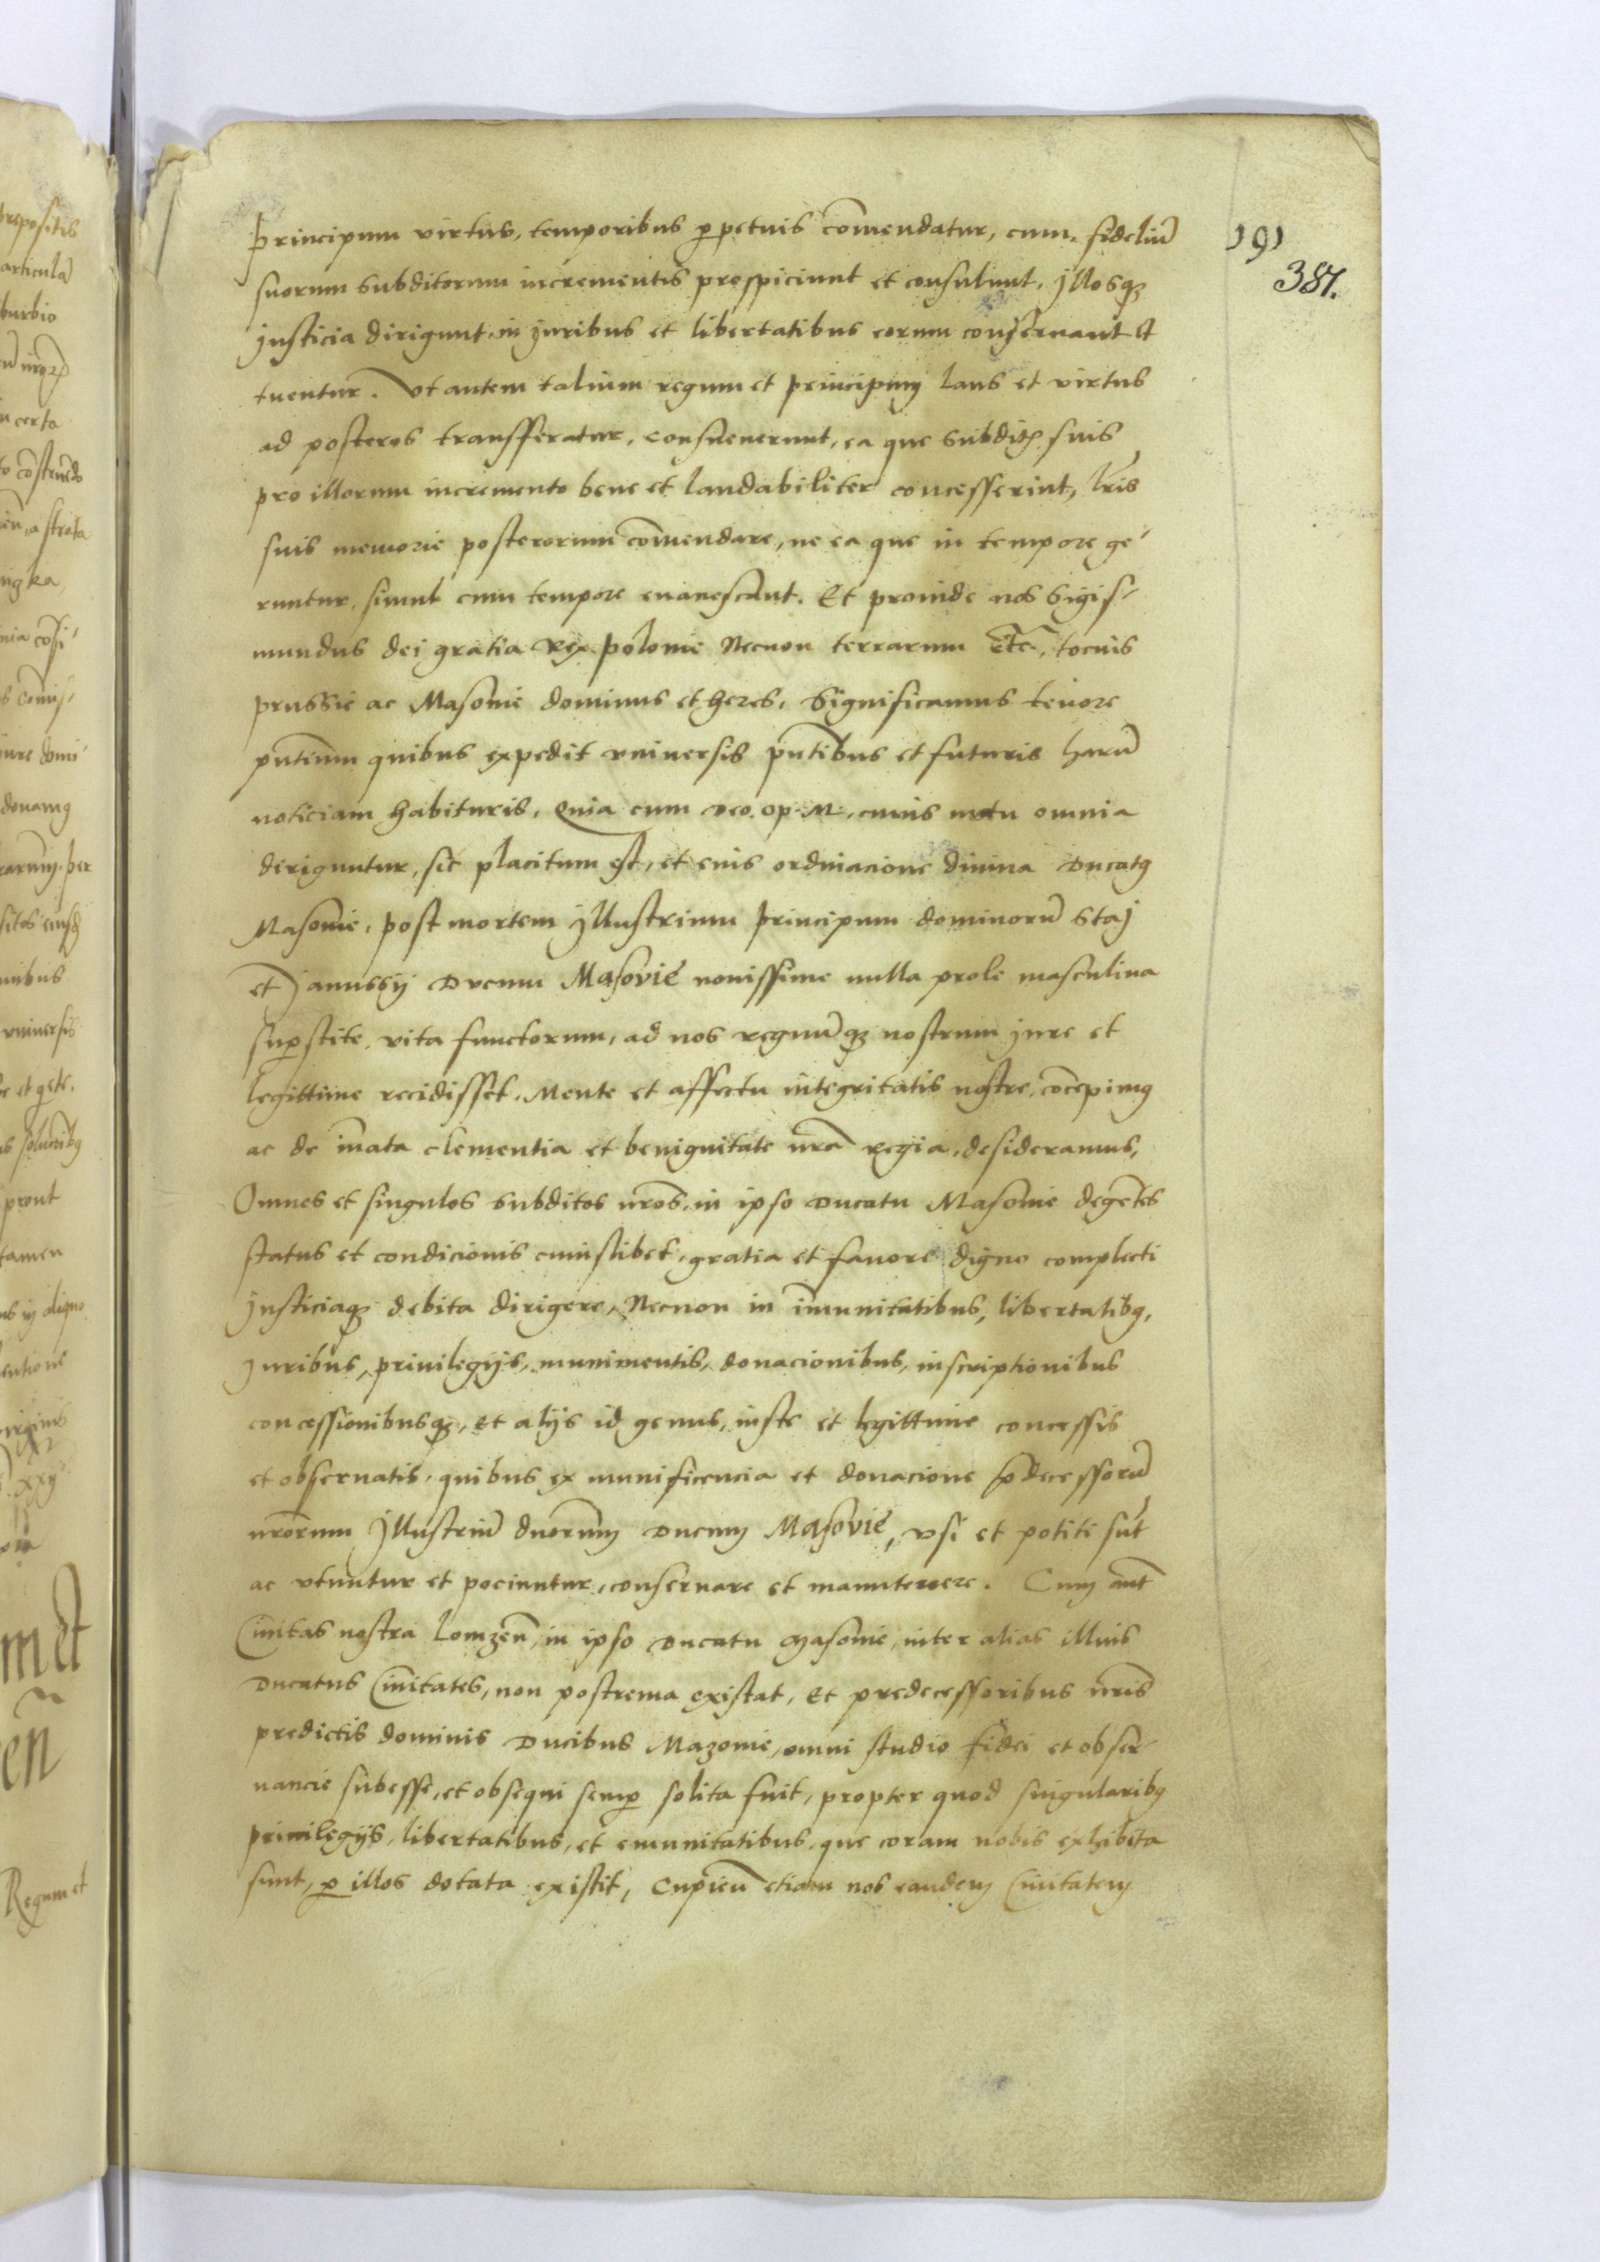 191
387.
Principum virtus, temporibus ppetuis com̄endatur, cum, fideliū
suorum subditorum incrementis prospiciunt et consulunt, Illosq3
Justicia dirigunt, in Juribus et libertatibus eorum conseruant et
tuentur. Vt autem talium regum et principum laus et virtus
ad posteros transfferatur, consueuerunt, ea que subdit̄ suis
pro illorum incremento bene et laudabiliter concesserint, lr̄is
suis memorie posterorum com̄endare, ne ea que in tempore ge-
runtur, simul cum tempore euanescant. Et proinde nos Sigis-
mundus dei gratia Rex polonie Necnon terrarum etc̄, tocius
prussie ac Masouie dominus et heres, Significamus tenore
pn̄tium quibus expedit vniuersis pn̄tibus et futuris harū
noticiam habituris, Quia cum Deo. Op. M. cuius nutu omnia
deriguntur, sic placitum est, et eius ordinacione diuina Ducatꝰ
Masouie, post mortem Illustrium principum dominorū Staj
et Janussij Ducum Masovie nouissime nulla prole masculina
supstite, vita functorum, ad nos regnūq3 nostrum Jure et
legittime recidisset, Mente et affectu integritatis nostre, concepimꝰ
ac de in̄ata clementia et benignitate nr̄a Regia, desideramus,
Omnes et singulos subditos nr̄os, in ipso Ducatu Masouie degentes
status et condicionis cuiuslibet, gratia et fauore digno complecti
Justiciaq3 debita dirigere, Necnon in im̄unitatibus, libertatibꝰ,
Juribus, priuilegijs, munimentis, donacionibus, inscriptionibus
concessionibusq3, et alijs id genus, iuste et legittime concessis
et obseruatis, quibus ex munificencia et donacione p̄decessorū
nr̄orum Illustriū dn̄orum Ducum Masovie, vsi et potiti sūt
ac vtuntur et pociuntur, conseruare et manutenere. Cum aut̄
Ciuitas nostra Lomzen̄, in ipso Ducatu Masouie, inter alias illius
Ducatus Ciuitates, non postrema existat, Et predecessoribus nr̄is
predictis dominis Ducibus Mazouie, omni studio fidei et obser-
uancie subesse, et obsequi semp solita fuit, propter quod singularibꝰ
priuilegijs, libertatibus, et emunitatibus, que coram nobis exhibita
sunt, p illos dotata existit, Cupien̄ etiam nos eandem Ciuitatem